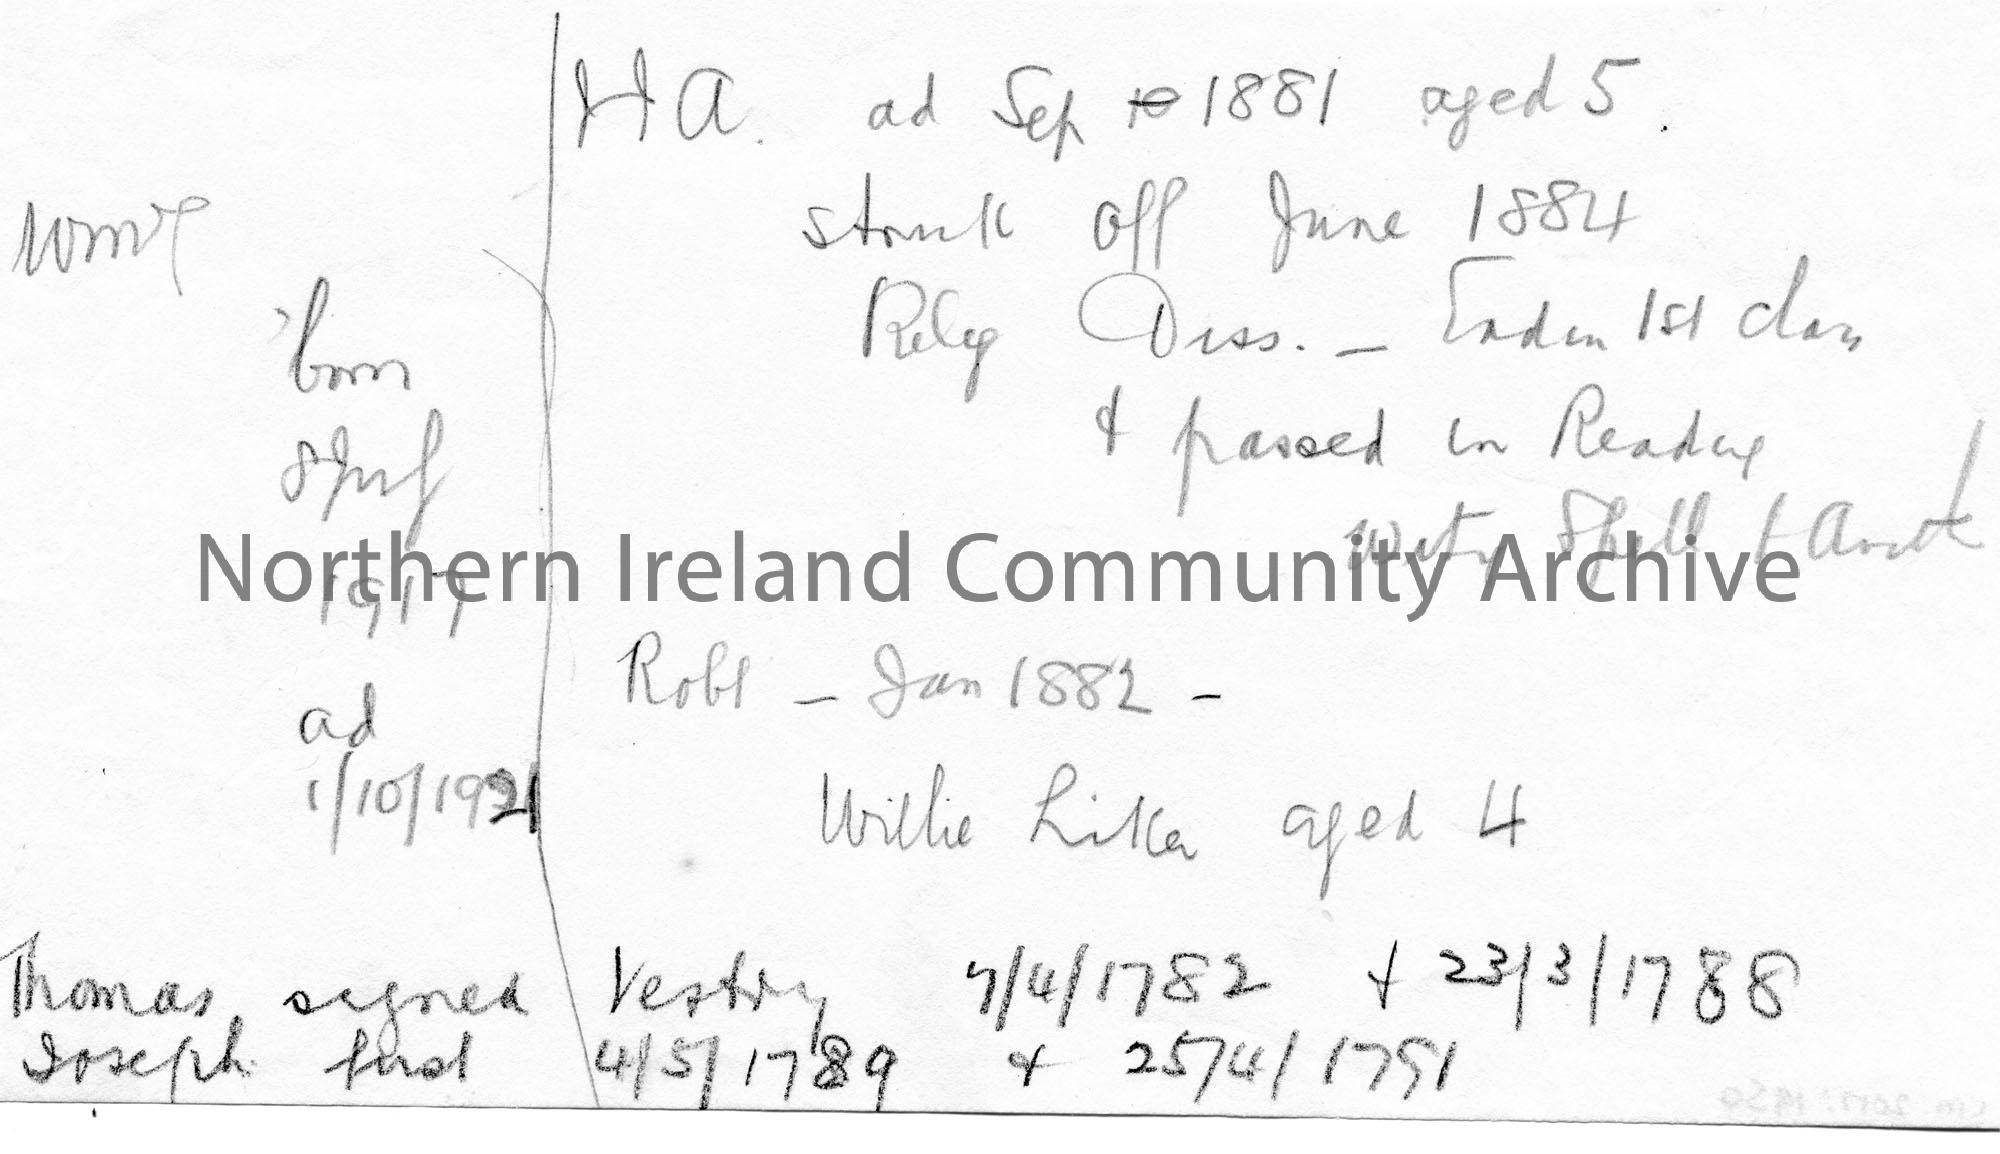 H A. ad Sep 1881 aged 5.
struck off June 1884
Relig Diss. – End in 1st class
& passed in Reading
Writg Spell & Arith
Robt – Jan 1882 –
Willie aged 4
born
8
1917
ad
1/10/1921
Thomas signed Vestry 7/4/1782 + 23/3/1788
Joseph first 4/5/1789 + 25/4/1791
Northern Ireland Community Archive